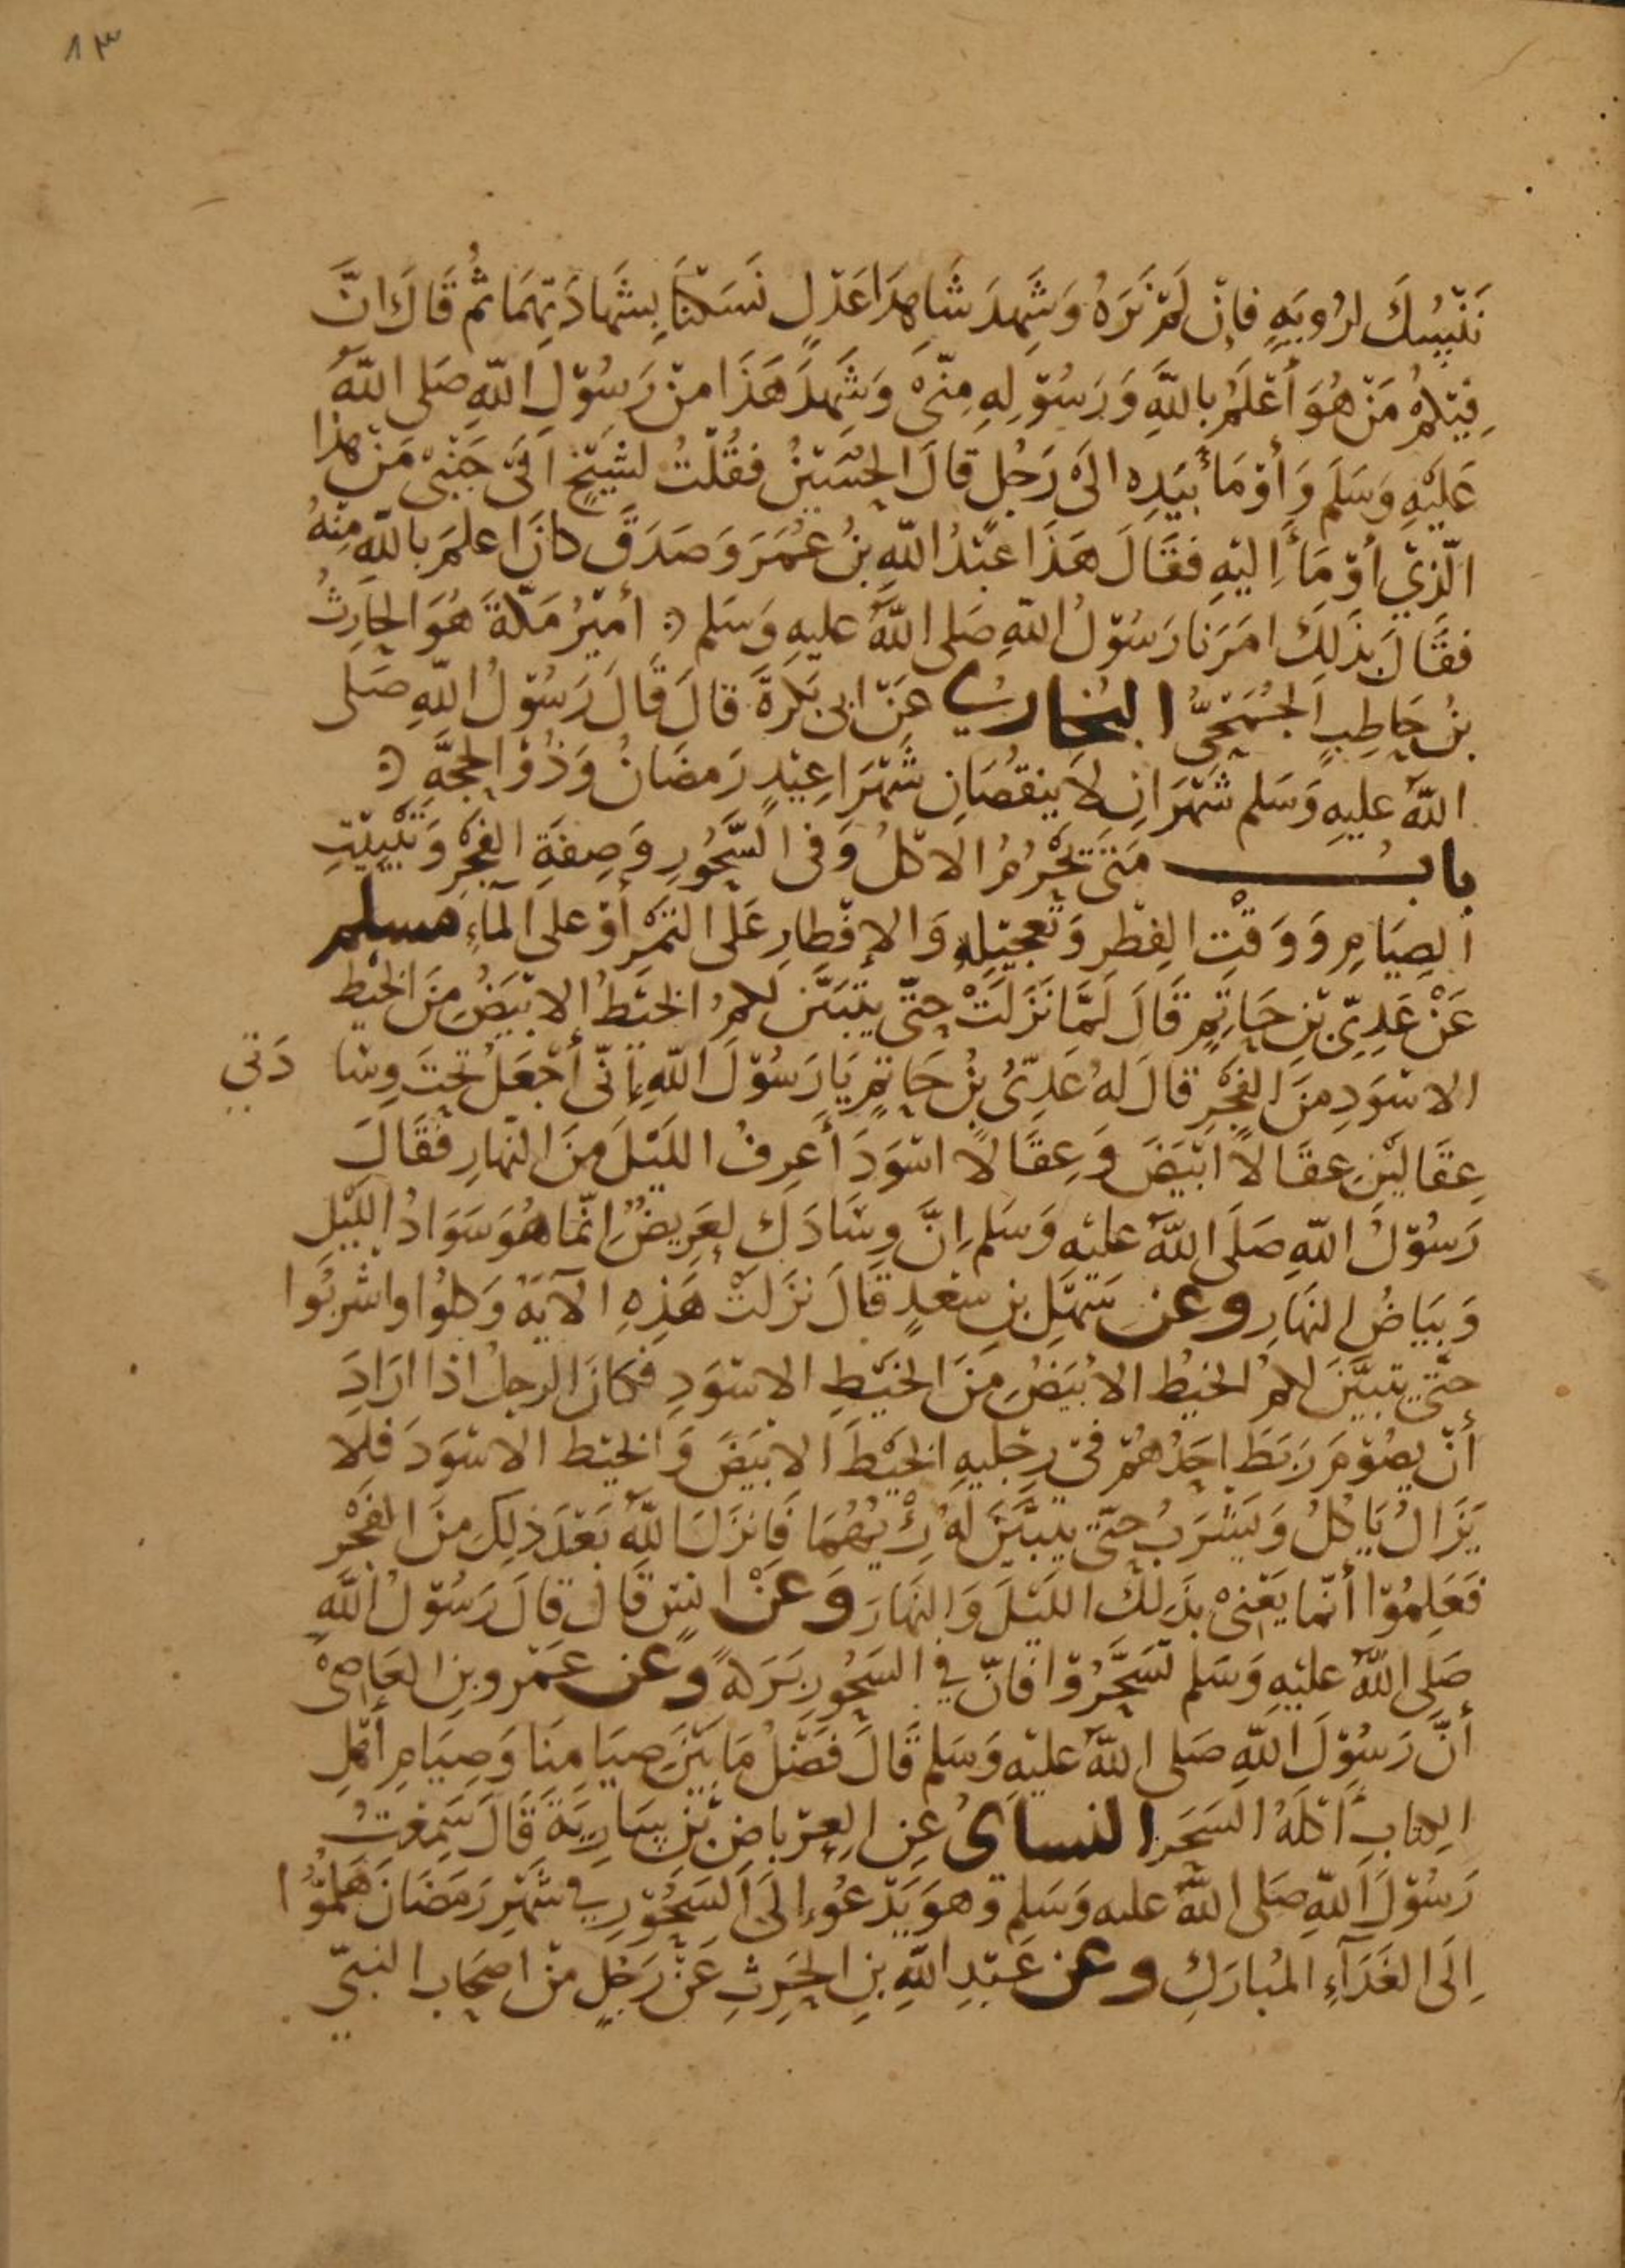 ١٣
نَنْسُكَ لرُويَهٍ فإنْ لَمْ نَرَهُ وَشَهِدَ شَاهِدَا عَدْلٍ نَسَكنَا بِشَهَادَتِهمَا ثُم قَالَ انَّ
فِيْكُمْ مَنْ هُوَ أَعْلَمُ بِاللَّهِ وَرَسُوْلِهِ مِنّىْ وَشَهِدَ هَذَا منْ رَسُوْلِ اللّهِ صَلى اللّهُ
عَلَيْهِ وَسَلم وَأوْمَأَ بيَدِهِ الَىْ رَجُلٍ قالَ الحُسَيْنُ فقُلْتُ لشَيْخٍ الَىَ جَنْبىْ مَنْ هذا
الّذِيْ أوْمَأَ اِليْهِ فقَالَ هَذَا عَبْدُ اللّهِ بنُ عُمَرَ وَصَدَقَ كانَ اعلمَ باللّهِ مِنْهُ
فقَالَ بذَلِكَ امَرَنَا رَسُوْلُ اللّهِ صَلى اللّهُ عليهِ وَسَلم أميْرُ مَكّةَ هُوَ الحَارِثُ
بنُ حَاطِبٍ الجُمَحِىُّ البُخارىُّ عَنْ ابى بَكرَةَ قالَ قَالَ رَسُوْلُ اللّهِ صَلى
اللّهُ عليهِ وَسَلم شَهْرَانِ لَا يَنقُصَانِ شَهْرَا عِيْدٍ رَمضَانُ وَذُوْ الحِجَّهِ
بابُ مَتَى تَحْرُمُ الاكلُ وَفى السَّحُوْرِ وَصِفَةِ الفَجْرِ وَتَبْيِيْتِ
الصِيَامِ وَوَقْتِ الفِطْرِ وَتَعْجِيْلِهِ وَالإفْطارِ عَلى التَمْرِ أوْ على المَآءِ مسلم
عَنْ عَدِيّ بْنِ حَاتِمٍ قَالَ لَمَّا نَزَلَتْ حتّى يَتَبَيَّن لكمُ الخَيْطُ الابْيَضُ مِنَ الخيْطِ
الاسْوَدِ مِنَ الفَجْرِ قالَ لهُ عَدِىُّ بْنُ حَاتِمٍ يَا رَسُوْلَ اللّهِ إنّى أجْعَلُ تَحْتَ وِسَا دَتي
عِقَاليْنِ عِقَالاً ابْيَضَ وَعِقَالاً اسْوَدَ أعرِفُ الليْلَ مِنَ النّهارِ فقَالَ
رَسُوْلُ اللّهِ صَلَى اللّهُ عليْهِ وَسَلم اِنَّ وِسَادَكَ لعَرِيضٌ اِنّمَا هُوَ سَوَادُ الليْلِ
وَبَيَاضُ النهَارِ وعن سَهْلِ بنِ سعْدٍ قالَ نزَلتْ هَذِهِ الآيَهُ وَكلوُا واشْرَبُوا
حتّى يتبيَّنَ لكمُ الخيْطُ الابْيَضُ مِنَ الخَيْطِ الاسْوَدِ فكانَ الرجلُ اذا ارَادَ
أنْ يصُوْمَ رَبَطَ احَدُهُمْ فى رِجْليهِ الخَيْطَ الابْيَضَ وَالخيْطَ الاسْوَدَ فلا
يَزَالُ يَاكلُ وَيَشْرَبُ حتّى يتبيَّنَ لهُ رِئْيُهُمَا فَانزَلَ اللّهُ بَعْدَ ذلِكَ مِنَ الفَجْرِ
فَعَلِمُوْا أنّمَا يَعْنىْ بذَلِكَ الليْلَ وَالنهَارَ وَعَنْ انسٍ قالَ قالَ رَسُوْلُ اللّهِ
صَلى اللّهُ عليْهِ وَسَلم تسَحَّرُوْا فانّ في السَحُورِ بَرَكهً وعن عَمْرو بنِ العَاصِىْ
أنَّ رَسُوْلَ اللّهِ صَلى اللّهُ عليْهِ وَسَلم قَالَ فَصْلُ مَا بَيْنَ صيَامِنَا وَصِيَامِ أهْلِ
الكتابِ أكلَهُ السَحَر النساىُ عنِ العِرْباضِ بْنِ سَارِيَةَ قَالَ سَمِعْتُ
رَسُوْلَ اللّهِ صَلى اللّهُ عليه وَسَلم وَهوَ يَدْعُو إلَى السَحُوْرِ في شَهْرِ رَمَضَانَ هَلمُّوْا
اِلَى الغَدَآءِ المُبارَكِ وعن عَبْدِ اللّهِ بنِ الحَرِثِ عَنْ رَجُلٍ منْ اصحَاب النبىّ